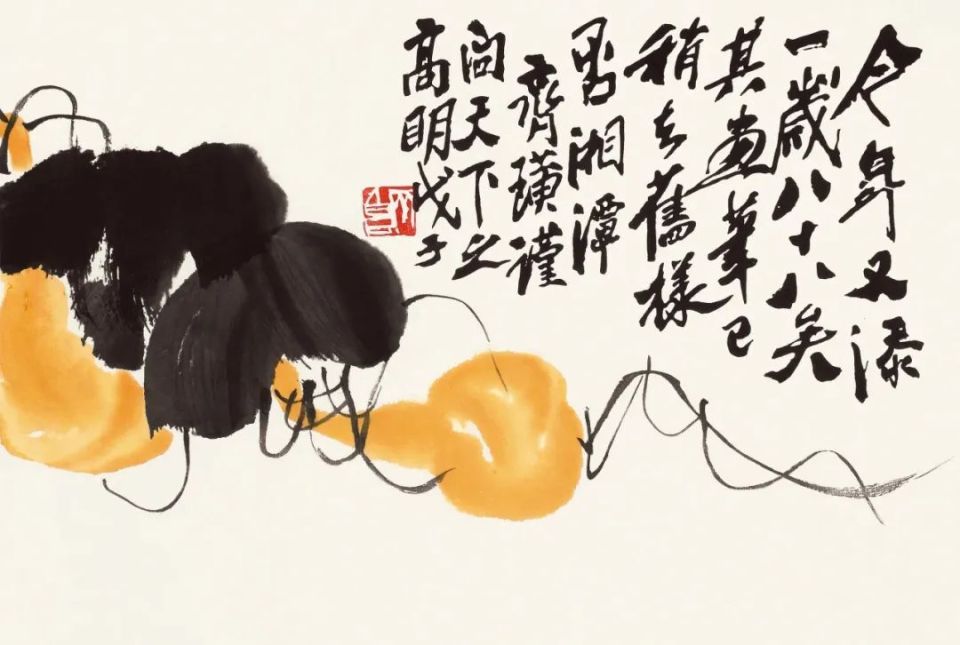 今年又添
一歲八十八矣
其畫筆已
稍去舊樣
湘潭
齊璜謹
問天下之
高明戊子